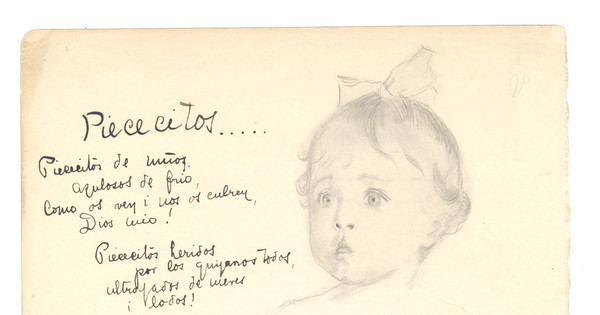 Piececitos.....
Piececitos de niños.
azulosos de frio,
Como os ven i nos os cubren,
Dios mio!
Piececitos heridos
por los guijarros todos,
ultrajados de nieves
i lodos!